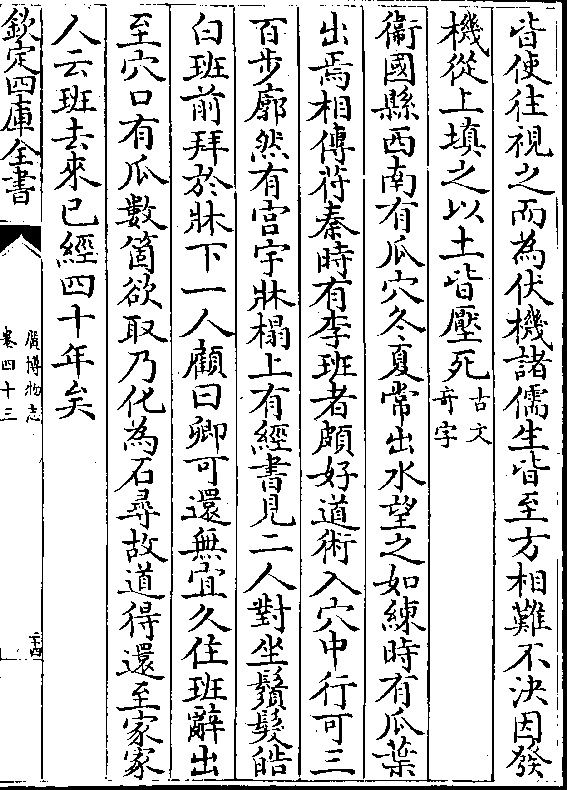 皆使往視之而為伏機諸儒生皆至方相難不決因發
機從上填之以土皆壓死古文奇字
衞國縣西南有瓜穴冬夏常出水望之如練時有瓜葉
出焉相傳苻秦時有李班者頗好道術入穴中行可三
百步廓然有宫宇牀榻上有經書見二人對坐鬚髮皓
白班前拜於牀下一人顧曰卿可還無宜久住班辭出
至穴口有瓜數箇欲取乃化為石尋故道得還至家家
人云班去來已經四十年矣
欽定四庫全書
廣博物志
卷四十三
二十四